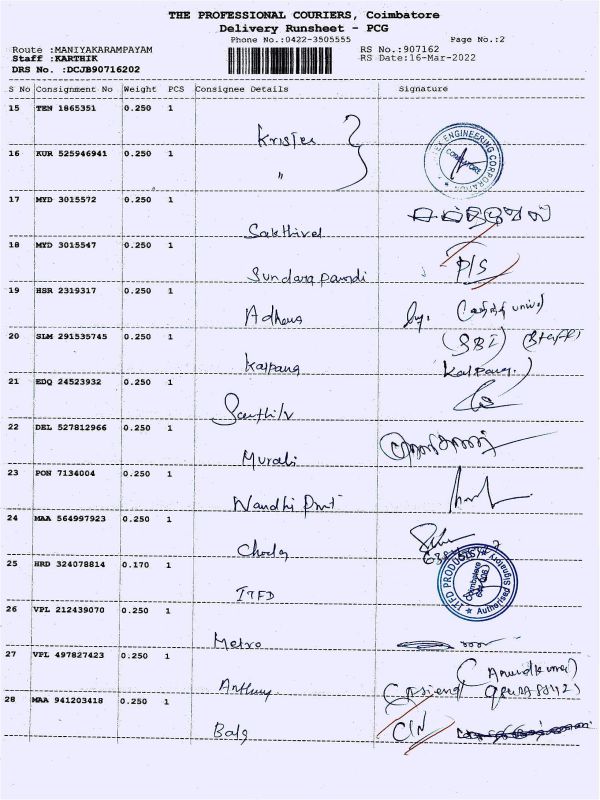 THE PROFESSIONAL COURIERS, Coimbatore
Delivery Runsheet - PCG
Phone No.:0422-3505555 Page No.:2
Route :MANIYAKARAMPAYAM RS No.:907162
Staff :KARTHIK RS Date:16-Mar-2022
DRS No. :DCJB90716202
S No Consignment No Weight PCS Consignee Details Signature
15 TEN 1865351 0.250 1
16 KUR 525946941 0.250 1 "
17 MYD 3015572 0.250 1 Sakthivel
18 MYD 3015547 0.250 1 P/S
19 HSR 2319317 0.250 1
20 SLM 291535745 0.250 1 Kalpana (SBI) (Staff) Kalpana.
21 EDQ 24523932 0.250 1
22 DEL 527812966 0.250 1 Murali
23 PON 7134004 0.250 1
24 MAA 564997923 0.250 1
25 HRD 324078814 0.170 1 ITFD ITFD PRODUCTS Coimbatore Authorised Signatory
26 VPL 212439070 0.250 1 Metro
27 VPL 497827423 0.250 1 Anthony
28 MAA 941203418 0.250 1 Bala C/N